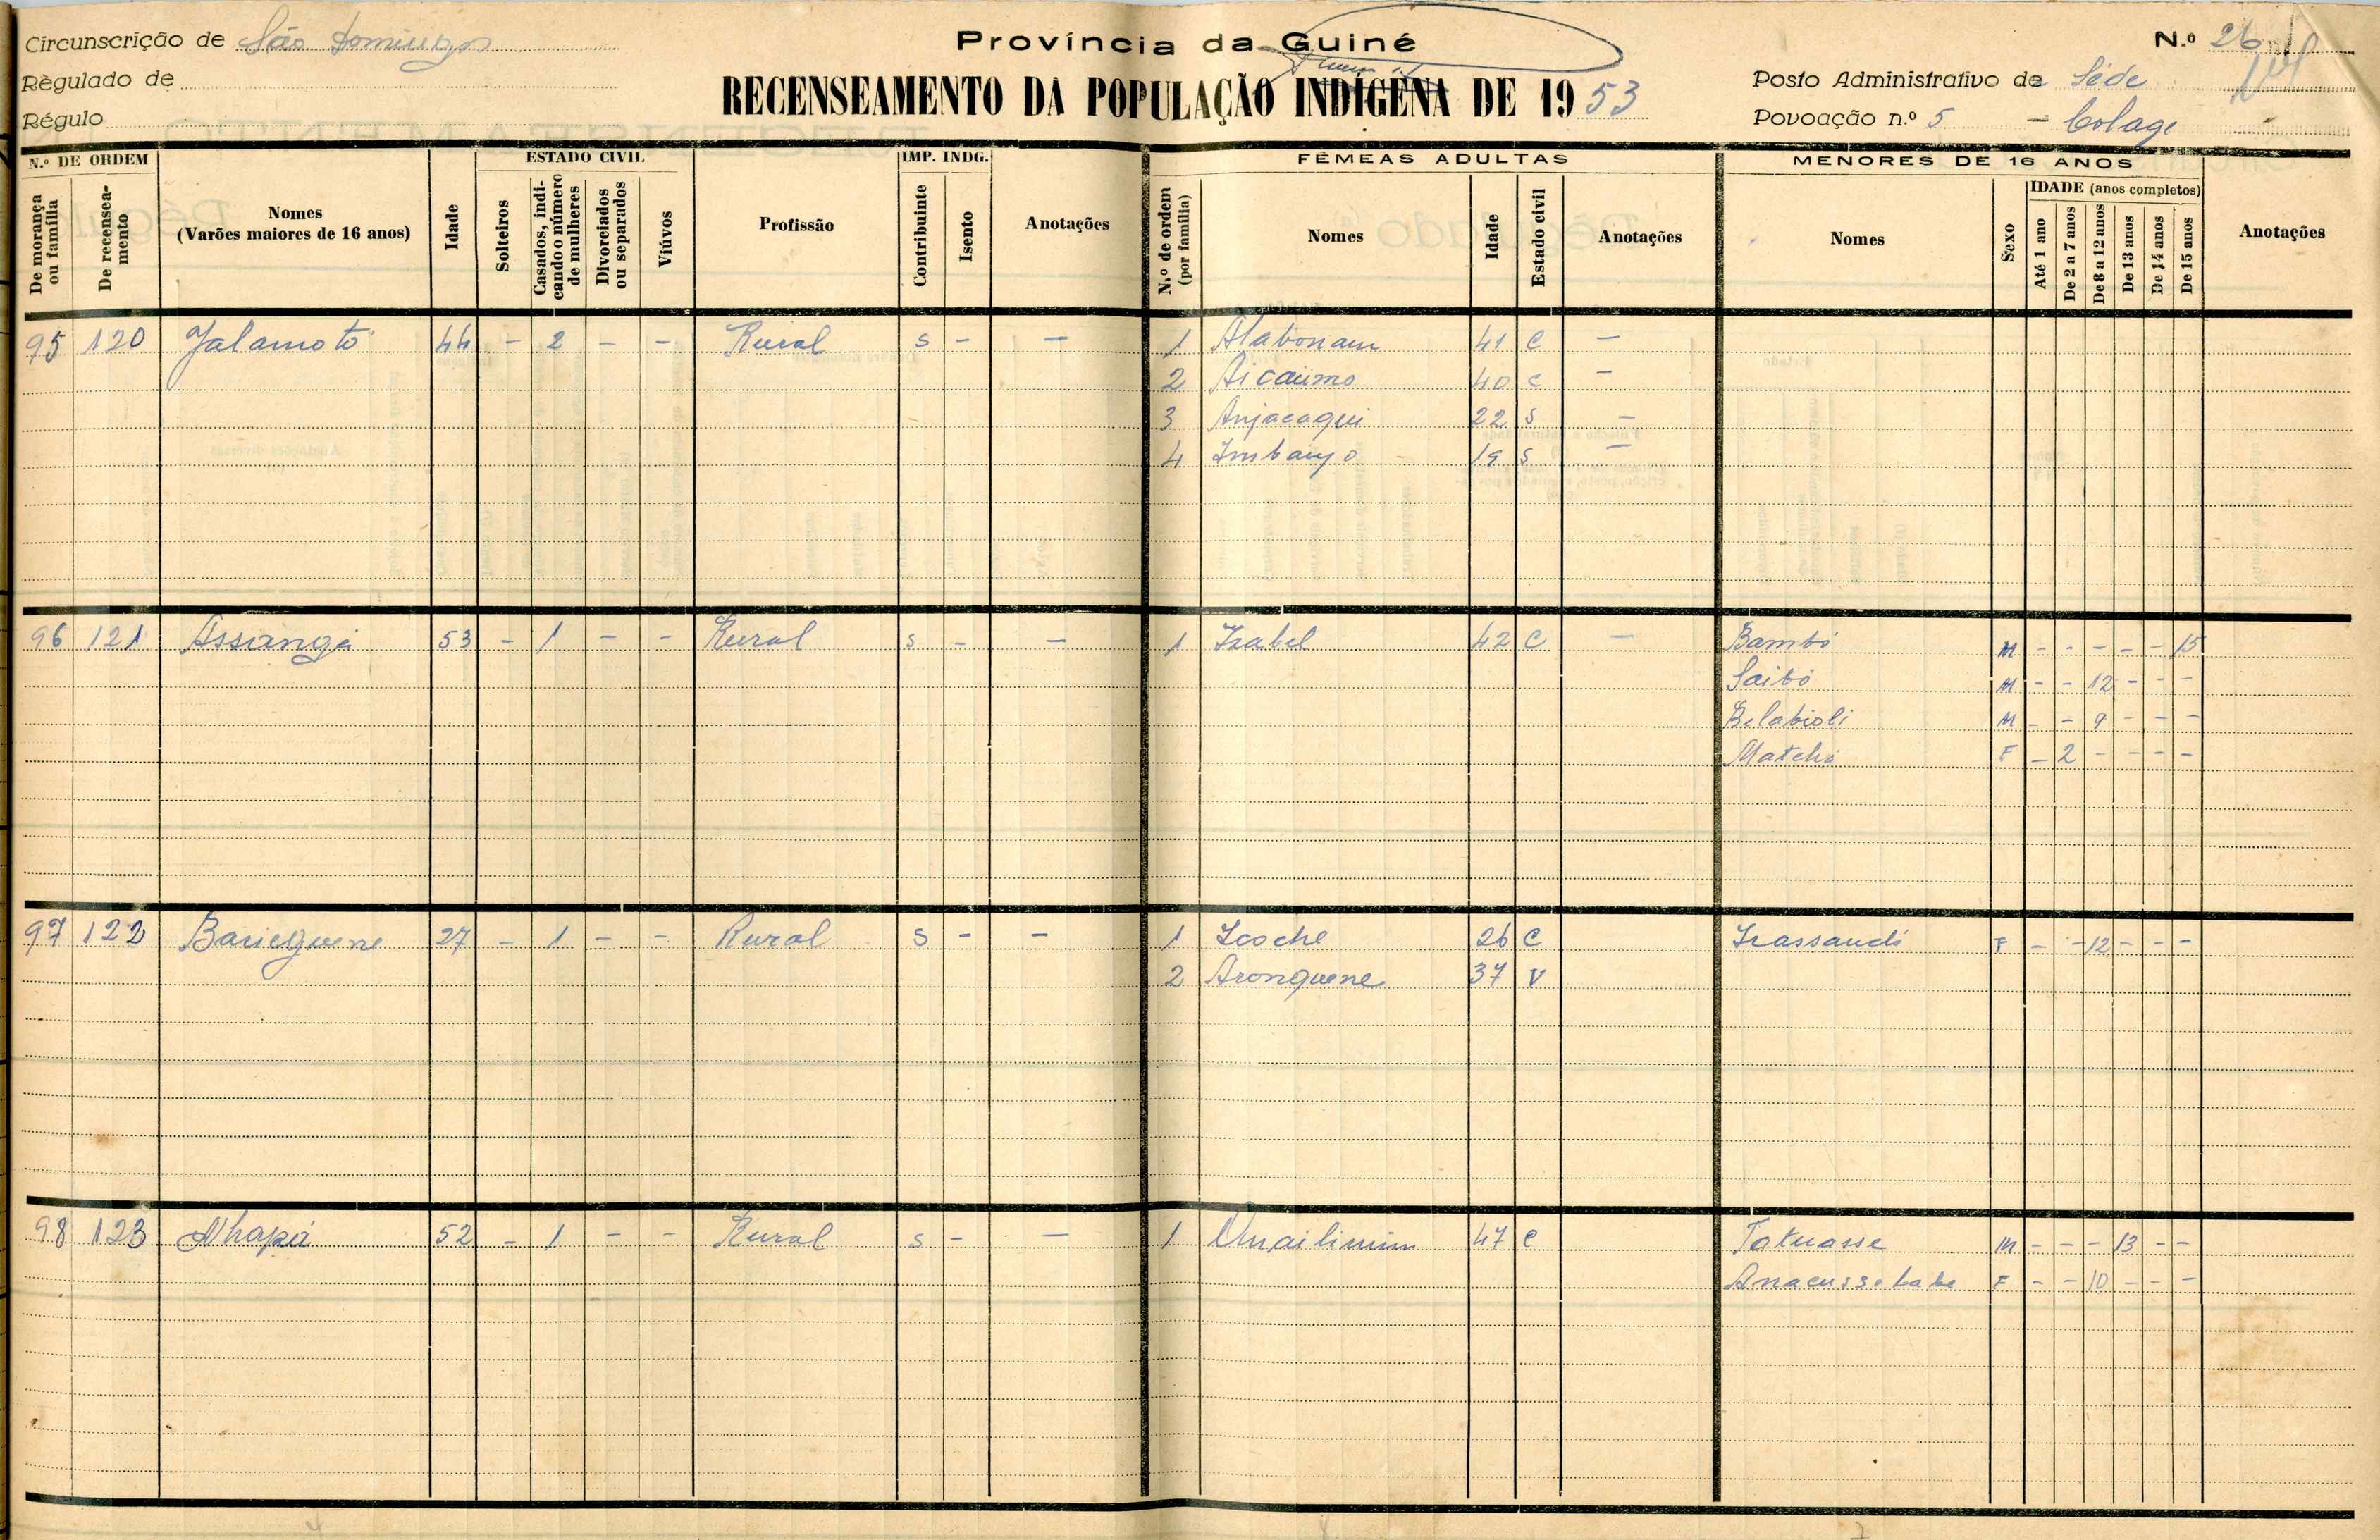 Circunscrição de São Domingos
Província da Guiné
N.º 26
Règulado de
RECENSEAMENTO DA POPULAÇÃO INDÍGENA DE 1953
Posto Administrativo de Séde
Régulo
Povoação n.º 5 - Colage
N.º DE ORDEM
De morança ou família
De recenseamento
Nomes (Varões maiores de 16 anos)
Idade
ESTADO CIVIL
Solteiros
Casados, indicando o número de mulheres
Divorciados ou separados
Viúvos
Profissão
IMP. INDG.
Contribuinte
Isento
Anotações
FÊMEAS ADULTAS
N.º de ordem (por família)
Nomes
Idade
Estado civil
Anotações
MENORES DE 16 ANOS
Nomes
Sexo
IDADE (anos completos)
Até 1 ano
De 2 a 7 anos
De 8 a 12 anos
De 13 anos
De 14 anos
De 15 anos
Anotações
95 120 Jalamotó 44 - 2 - - Rural S - - 1 Alabonam 41 C -
2 Aicaúmo 40 C -
3 Anjacaqui 22 S -
4 Imbanjo 19 S -
96 121 Assangá 53 - 1 - - Rural S - - 1 Izabel 42 C - Bambó M - - - - - 15
Saibó M - - 12 - - -
Belabioli M - - 9 - - -
Matchá F - 2 - - - -
97 122 Barieguene 27 - 1 - - Rural S - - 1 Icoche 26 C Irassandi F - - 12 - - -
2 Aronguene 37 V
98 123 Nhapá 52 - 1 - - Rural S - - 1 47 C Tatuasse M - - - 13 - -
Anacussebabe F - - 10 - - -